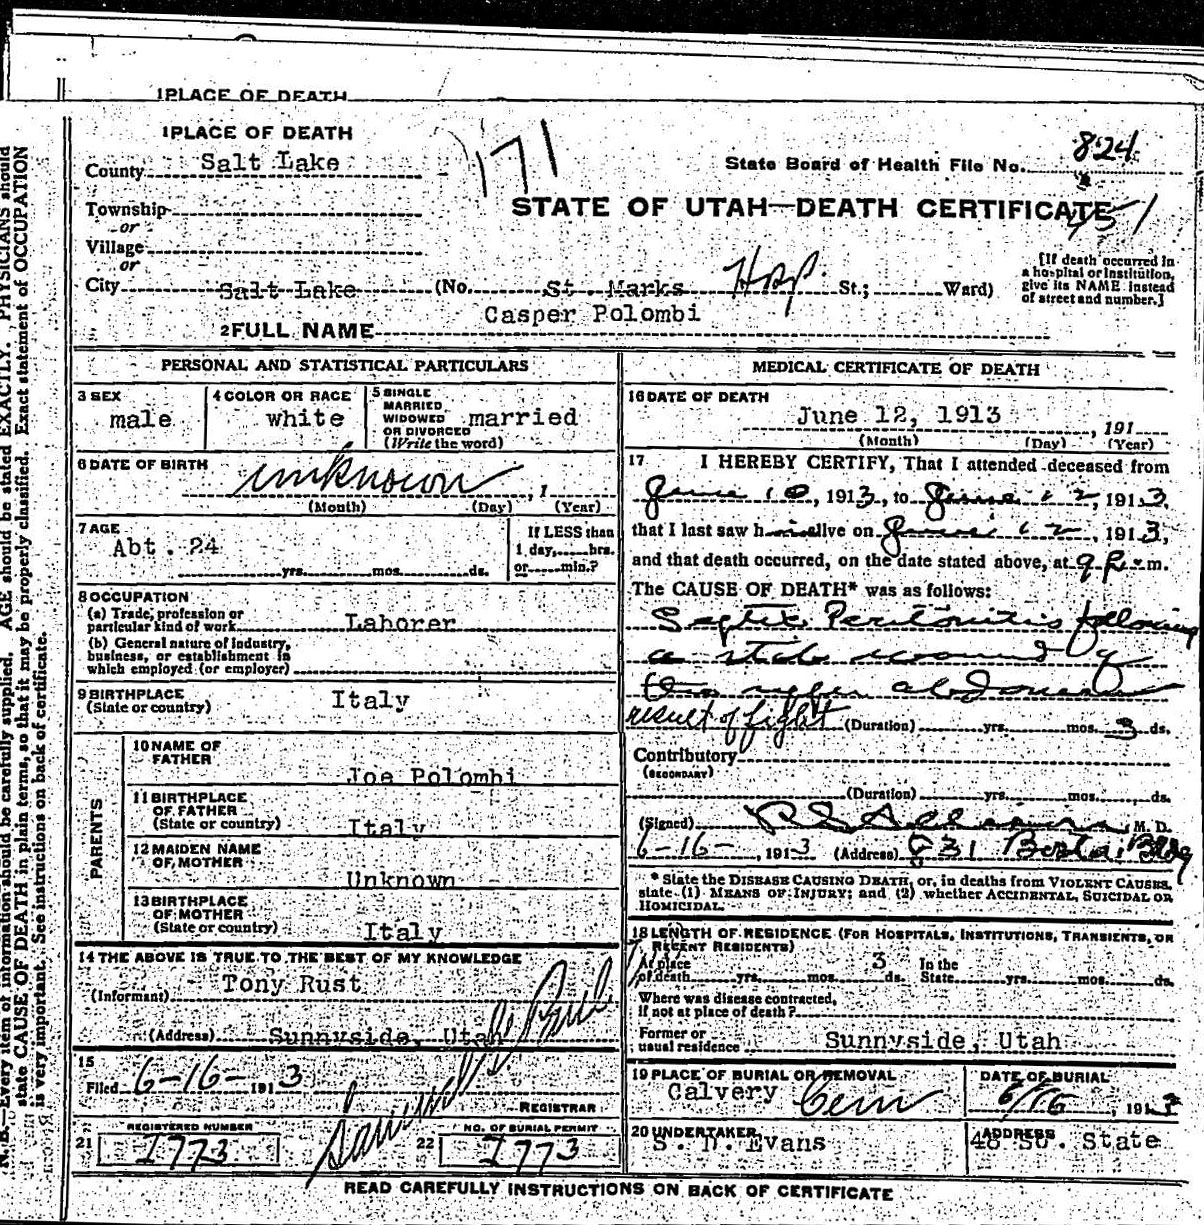 1 PLACE OF DEATH
1 PLACE OF DEATH
County Salt Lake
171
State Board of Health File No. 824
Township
or
STATE OF UTAH—DEATH CERTIFICATE
451
Village
or
City Salt Lake (No. St. Marks Hosp. St.; Ward)
[If death occurred in
a hospital or institution,
give its NAME instead
of street and number.]
2 FULL NAME Casper Polombi
PERSONAL AND STATISTICAL PARTICULARS
3 SEX
male
4 COLOR OR RACE
white
5 SINGLE
MARRIED,
WIDOWED
OR DIVORCED
(Write the word)
married
6 DATE OF BIRTH
unknown, 1
(Month) (Day) (Year)
7 AGE
Abt. 24
yrs. mos. ds.
If LESS than
1 day, hrs.
or min.?
8 OCCUPATION
(a) Trade, profession or
particular kind of work Laborer
(b) General nature of industry,
business, or establishment in
which employed (or employer)
9 BIRTHPLACE
(State or country)
Italy
PARENTS
10 NAME OF
FATHER
Joe Polombi
11 BIRTHPLACE
OF FATHER
(State or country)
Italy
12 MAIDEN NAME
OF MOTHER
Unknown
13 BIRTHPLACE
OF MOTHER
(State or country)
Italy
14 THE ABOVE IS TRUE TO THE BEST OF MY KNOWLEDGE
(Informant) Tony Rust
(Address) Sunnyside, Utah
15
Filed 6-16- 1913
REGISTRAR
21
REGISTERED NUMBER
1773
22
NO. OF BURIAL PERMIT
1773
MEDICAL CERTIFICATE OF DEATH
16 DATE OF DEATH
June 12, 1913, 191
(Month) (Day) (Year)
17 I HEREBY CERTIFY, That I attended deceased from
June 10, 1913, to June 12, 1913,
that I last saw him alive on June 12, 1913,
and that death occurred, on the date stated above, at 9 P. m.
The CAUSE OF DEATH* was as follows:
Septic Peritonitis following
a stab wound of
the upper abdomen
result of fight (Duration) yrs. mos. 3 ds.
Contributory
(SECONDARY)
(Duration) yrs. mos. ds.
(Signed) M. D.
6-16-, 1913 (Address) 831 Boston Bldg
* State the DISEASE CAUSING DEATH, or, in deaths from VIOLENT CAUSES,
state (1) MEANS OF INJURY; and (2) whether ACCIDENTAL, SUICIDAL OR
HOMICIDAL.
18 LENGTH OF RESIDENCE (FOR HOSPITALS, INSTITUTIONS, TRANSIENTS, OR
RECENT RESIDENTS)
At place
of death yrs. mos. 3 ds.
In the
State yrs. mos. ds.
Where was disease contracted,
if not at place of death?
Former or
usual residence Sunnyside, Utah
19 PLACE OF BURIAL OR REMOVAL
Calvery Cem
DATE OF BURIAL
6/16, 1913
20 UNDERTAKER
S. D. Evans
ADDRESS
48 So. State
READ CAREFULLY INSTRUCTIONS ON BACK OF CERTIFICATE
N. B.—Every item of information should be carefully supplied. AGE should be stated EXACTLY. PHYSICIANS should
state CAUSE OF DEATH in plain terms, so that it may be properly classified. Exact statement of OCCUPATION
is very important. See instructions on back of certificate.